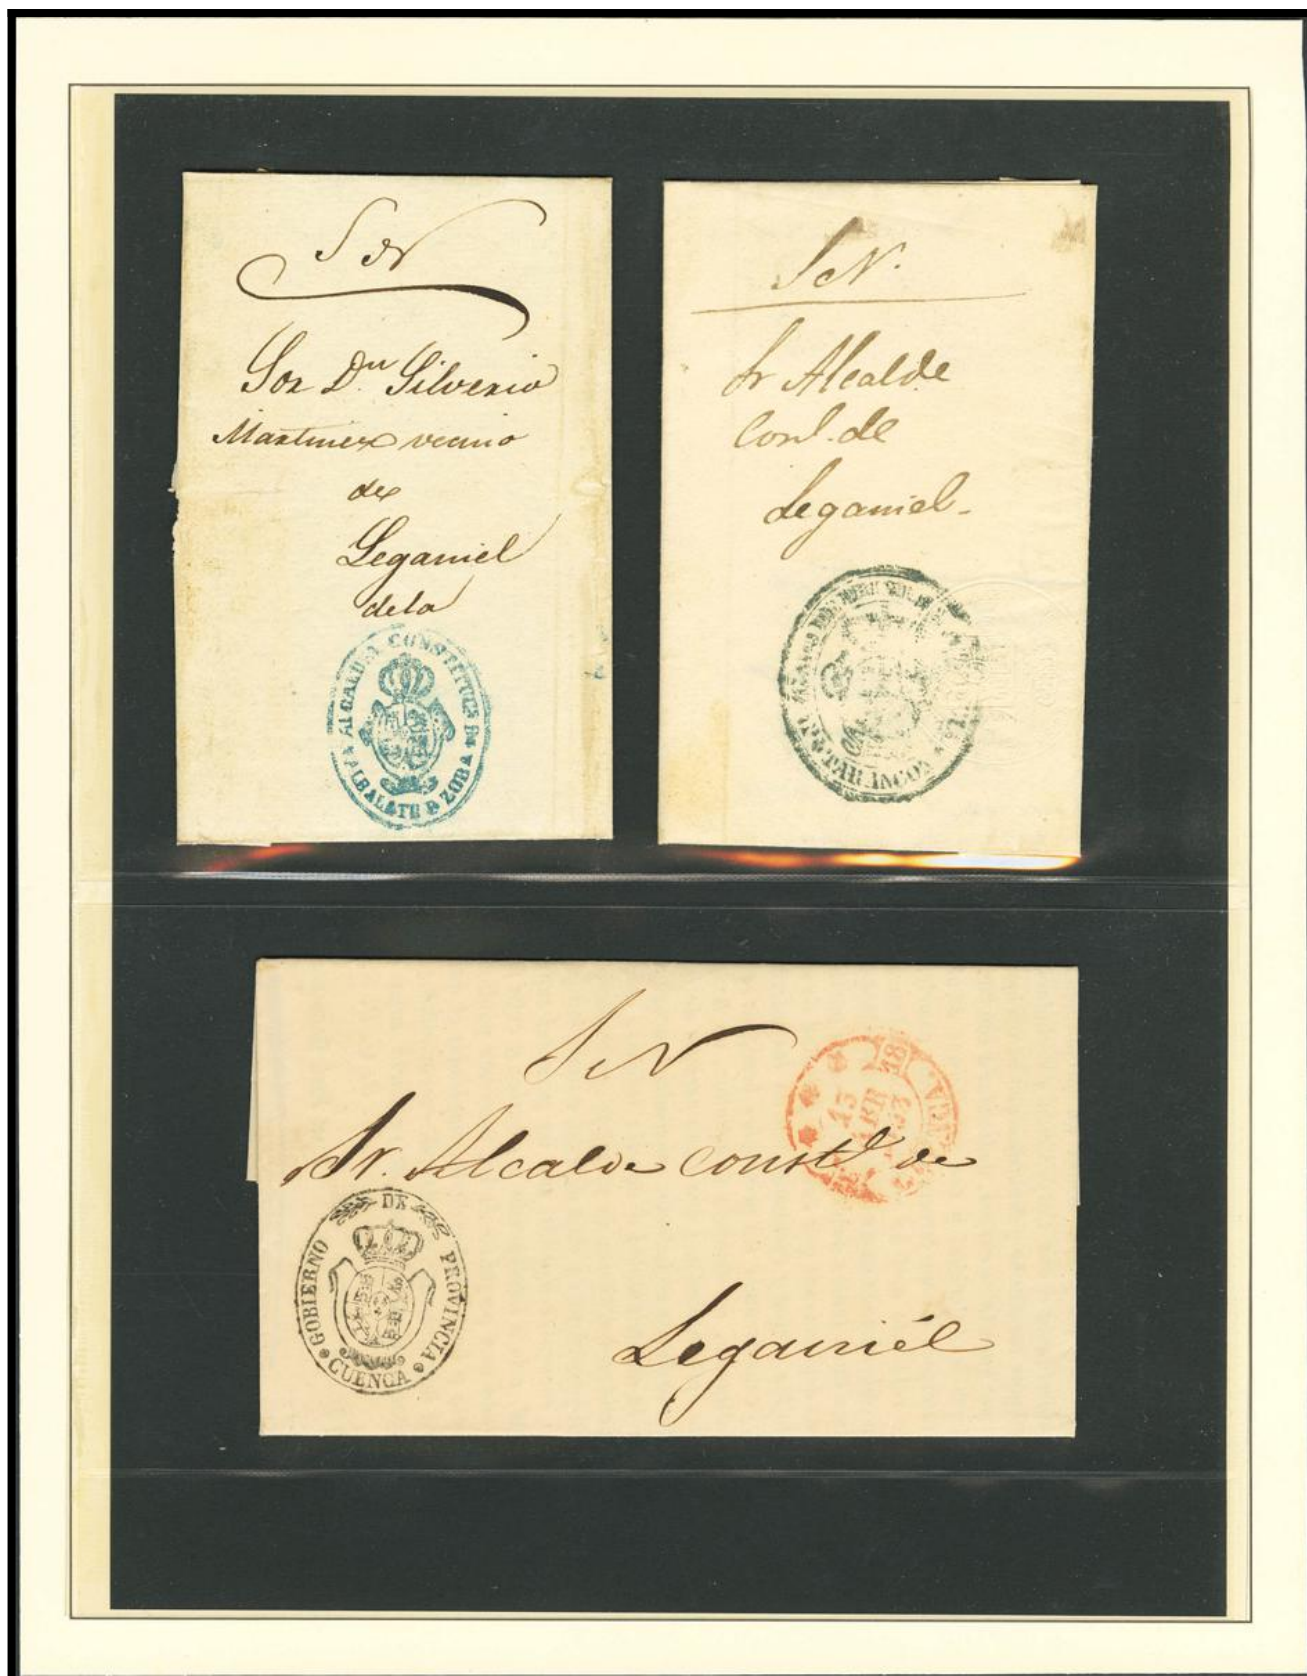 S N
Sor Dn. Silverio
Martinez vecino
de
Leganiel
dela
ALCALDIA CONSTITUCL DE
ALBALATE D ZORA
S N.
Sr Alcalde
Conl. de
Leganiel-
TARANCON
S N
Sr. Alcalde constl de
Leganiél
GOBIERNO DE PROVINCIA
CUENCA
13